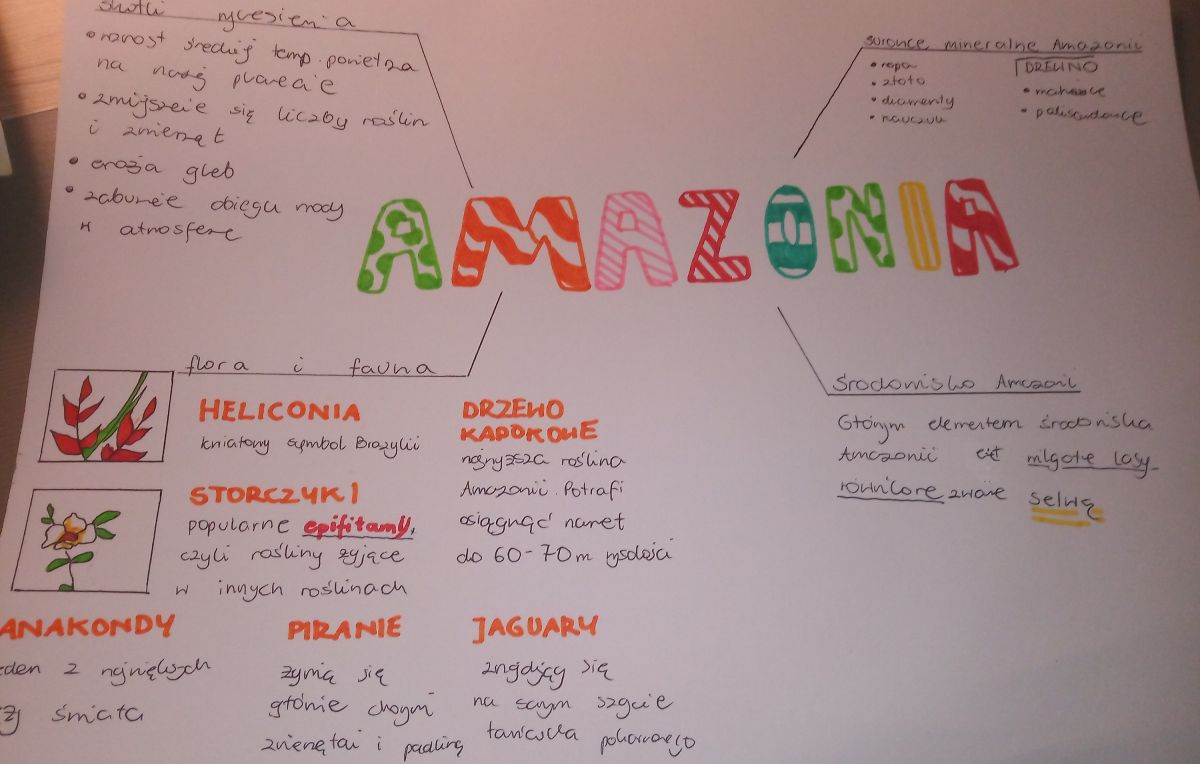 skutki wylesienia
• wzrost średniej temp. powietrza
na naszej planecie
• zmniejszeie się liczby roślin
i zwierząt
• erozja gleb
• zaburzeie obiegu wody
w atmosferze
surowce mineralne Amazonii
• ropa
• złoto
• diamenty
• kauczuk
DREWNO
• mahoniowe
• palisandrowe
AMAZONIA
flora i fauna
HELICONIA
kwiatowy symbol Brazylii
STORCZYKI
popularne epifitamy,
czyli rośliny żyjące
w innych roślinach
DRZEWO
KAPOKOWE
najwyższa roślina
Amazonii. Potrafi
osiągnąć nawet
do 60-70m wysokości
ANAKONDY
jeden z największych
węży świata
PIRANIE
żywią się
głównie chorymi
zwierzętami i padliną
JAGUARY
znajdujący się
na samym szczycie
łańcucha pokarmowego
środowisko Amazonii
Głównym elementem środowiska
Amazonii są wilgotne lasy
równikowe zwane selwą